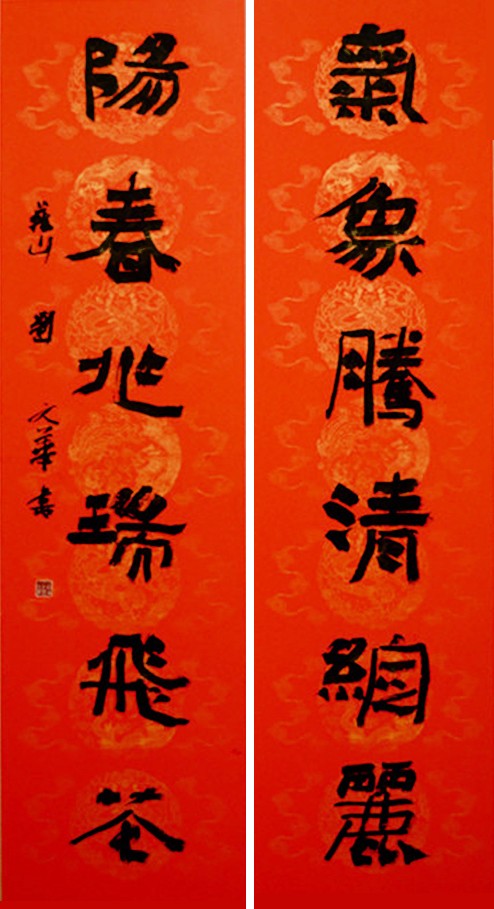 氣象騰清絢麗
陽春兆瑞飛花
山 劉文華書